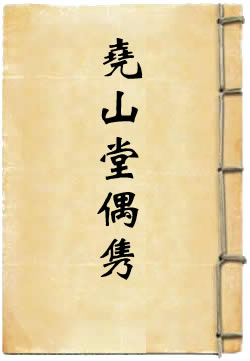 堯山堂偶雋